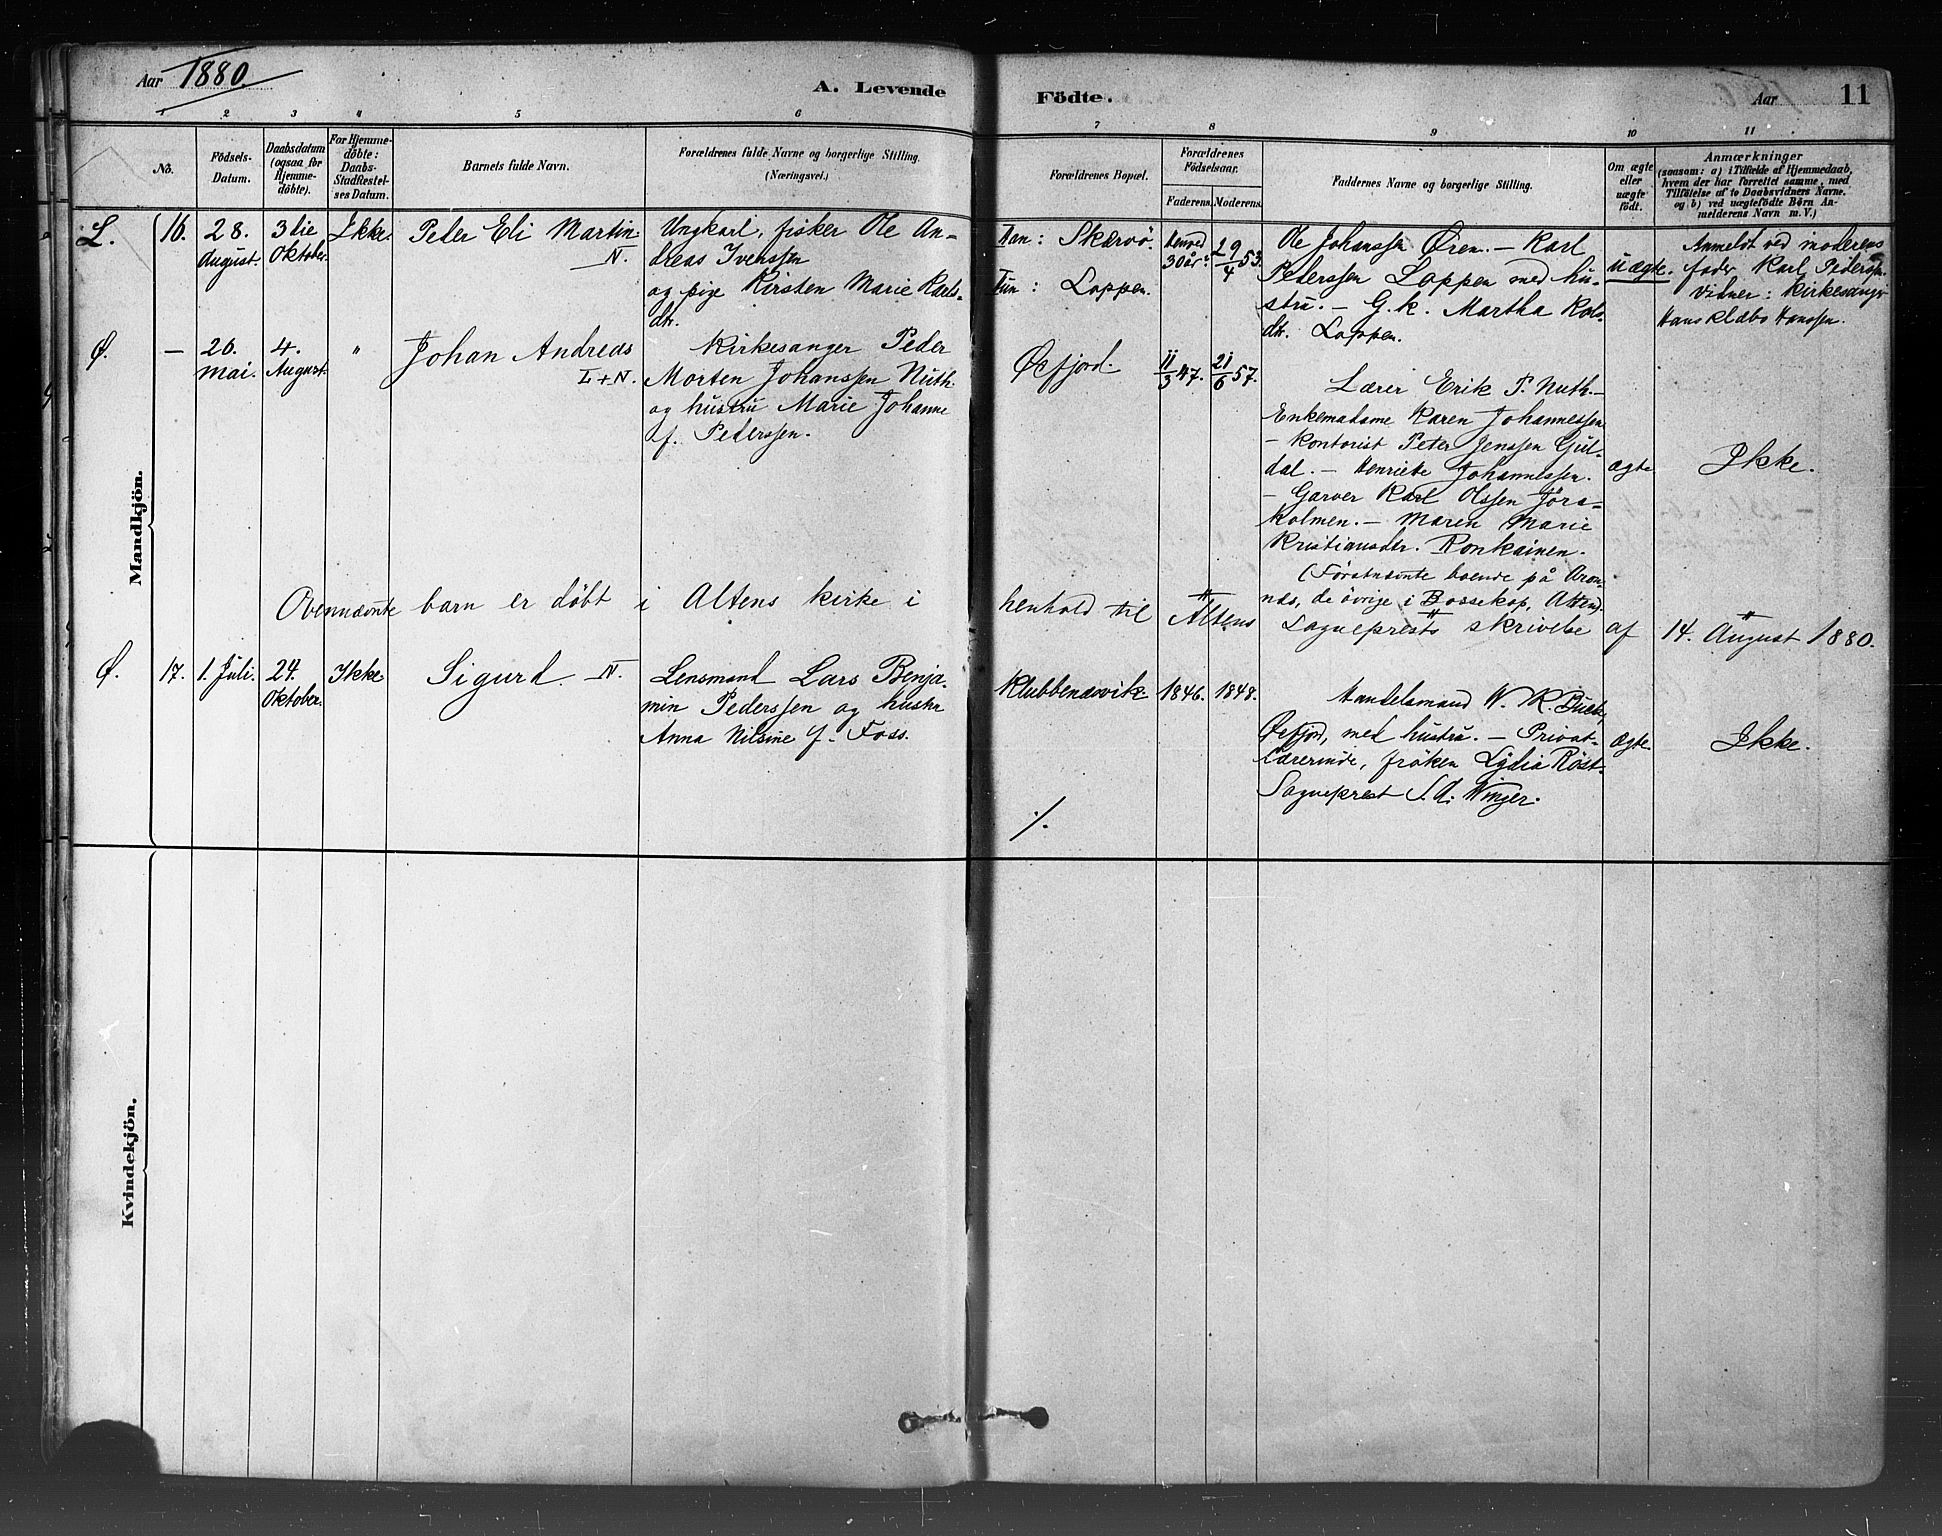 Aar 1880.
A. Levende
Födte.
Aar
11
1 2 3 4 5 6
7 8 9 10 11
No.
Födsels-
Datum.
Daabsdatum
(ogsaa for
Hjemme-
döbte).
For Hjemme-
döbte:
Daabs-
Stadfæstel-
ses Datum.
Barnets fulde Navn.
Forældrenes fulde Navne og borgerlige Stilling.
(Næringsvei.)
Forældrenes Bopæl.
Forældrenes
Födselsaar.
Faderens.
Moderens.
Faddernes Navne og borgerlige Stilling.
Om ægte
eller
uægte
födt.
Anmærkninger
(saasom: a) i Tilfælde af Hjemmedaab,
hvem der har forrettet samme, med
Tilföielse af to Daabsvidners Navne.
og b) ved uægtefödte Börn An-
melderens Navn m. V.)
Mandkjön.
L.
16.
28.
August.
3die
Oktober.
Ikke.
Peter Eli Martin
N.
Ungkarl, fisker Ole An-
dreas Ivenssen
og pige Kirsten Marie Karls-
dtr.
Han: Skærvö.
Hun: Loppen.
30 år
29/4 53.
Ole Johanssen Øren. — Karl
Peterssen Loppen med hu-
stru. — G. k. Martha Kols-
dtr. Loppen.
uægte.
Anmeldt ved moderens
fader Karl Pederssen.
Vidner: Kirkesanger
Hans Klæbo Hanssen.
Ø.
—
26.
mai.
4.
August.
"
Johan Andreas
L+N.
Kirkesanger Peder
Morten Johanssen Nuth
og hustru Marie Johanne
f. Pederssen.
Øxfjord.
11/3 47.
21/6 57.
Lærer Erik P. Nuth. —
Enkemadame Karen Johannessen
— Kontorist Peter Jenssen Gul-
dal. — Henriette Johannessen.
— Garver Karl Olssen Jöra-
holmen. — Maren Marie
Kristiansdtr. Ronkainen.
(Förstnævnte boende på Aron-
næs, de övrige i Bossekop, Alten).
ægte
Ikke.
Ovennævnte barn er döbt i Altens kirke i henhold til Altens Sogneprests skrivelse af 14. August 1880.
Ø.
17.
1. Juli.
24.
Oktober.
Ikke
Sigurd — N.
Lensmand Lars Benja-
min Pederssen og hustru
Anna Nilsine f. Foss.
Klubbenæsvik
1846.
1848.
Handelsmand W. R. Buck,
Øxfjord, med hustru. — Privat-
lærerinde, fröken Lydia Röst.
Sogneprest S. A. Winger.
ægte
Ikke.
./.
Kvindekjön.